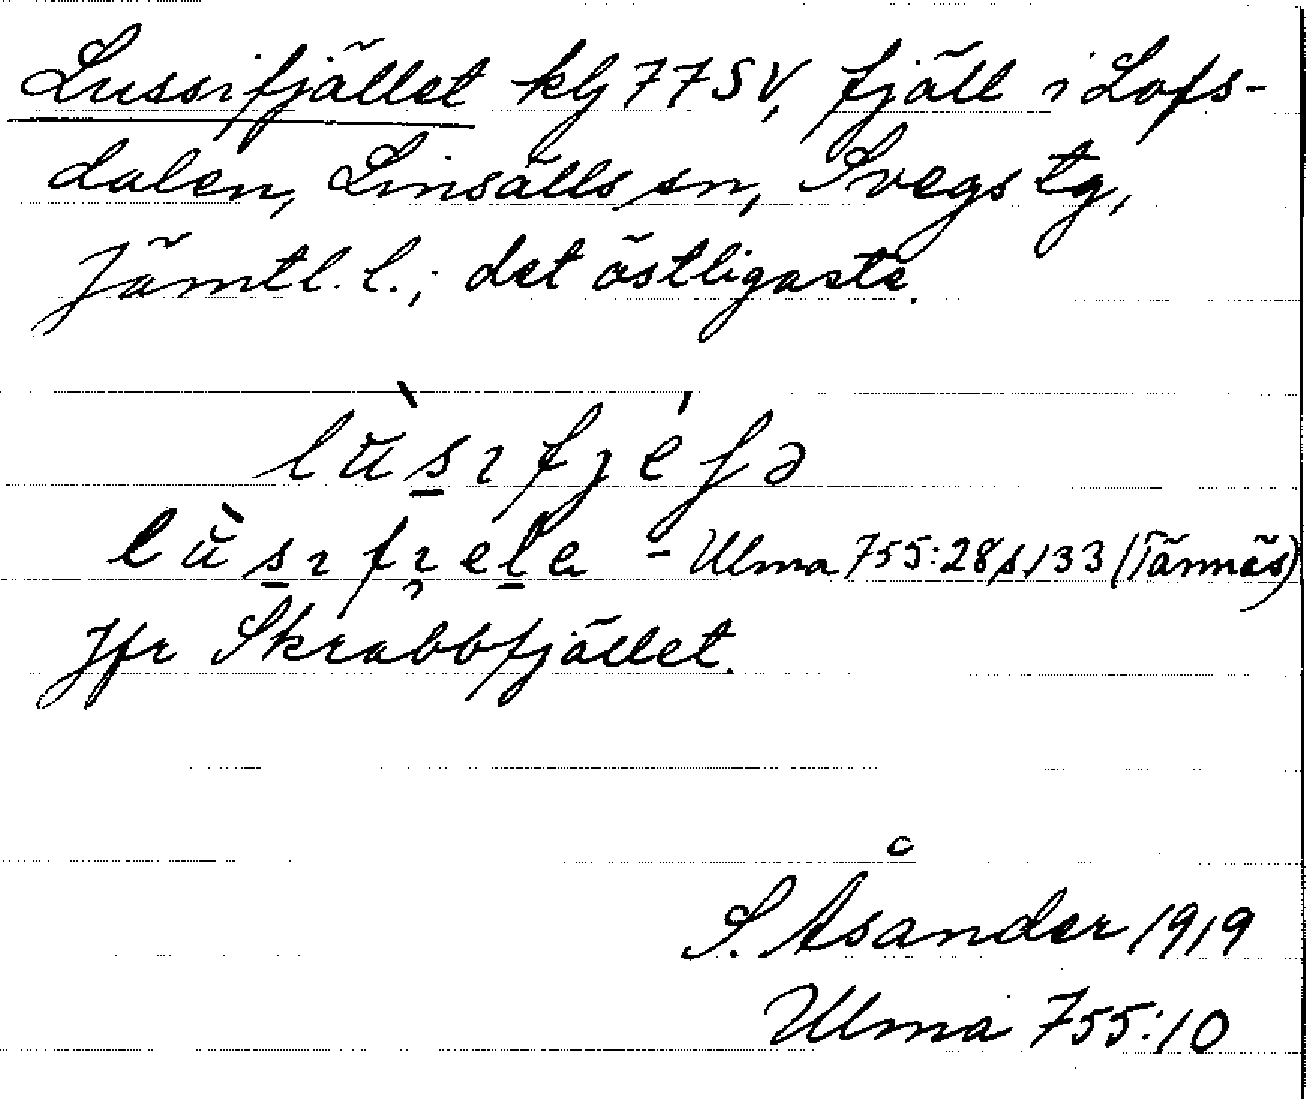 Lussifjället kbl 77 SV, fjäll i Lofs-
dalen, Linsälls sn, Svegs tg,
Jämtl. l.; det östligaste.
- Ulma 755:28 s 133 (Tännäs)
Jfr Skrabbfjället.
S. Åsander 1919
Ulma 755:10